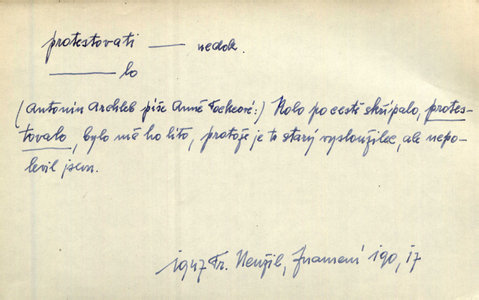 protestovati — nedok.
——— lo
(Antonín Archleb píše Anně :) Kolo po cestě skřípalo, protes-
tovalo, bylo mě ho líto, protože je to starý vysloužilec, ale nepo-
levil jsem.
1947 Fr. Neužil, Znamení 190, 17